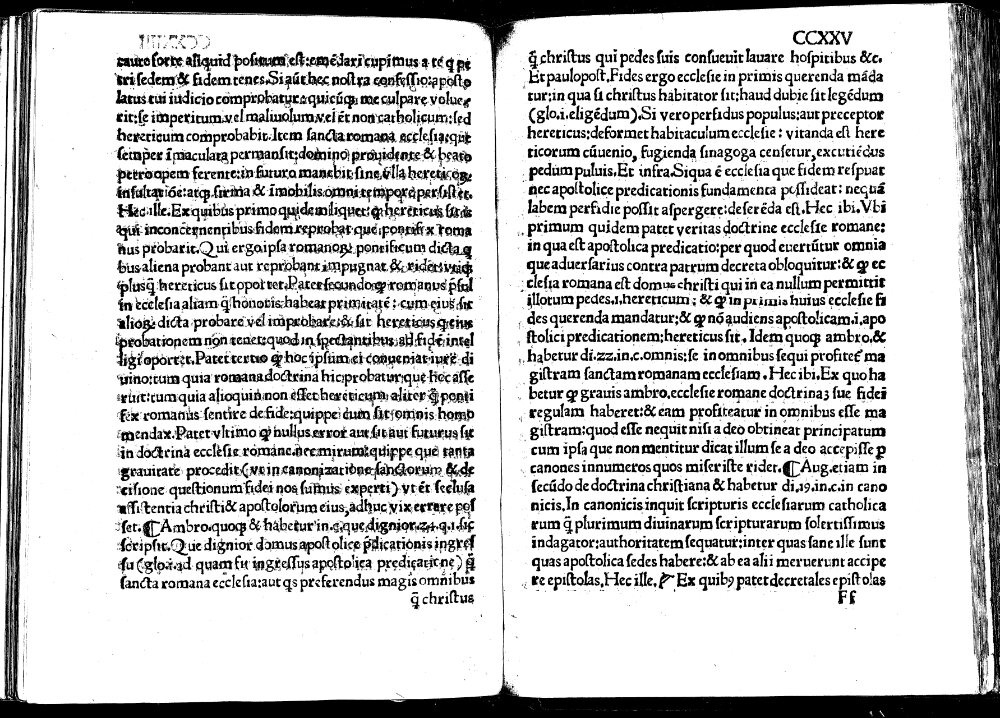 caute forte aliquid positum est: emēdari cupimus a te q̄ pe
tri sedem & fidem tenes. Si aūt hec nostra confessio: aposto
latus tui iudicio comprobatur: quicūq; me culpare volue
rit: se imperitum vel maliuolum vel ēt non catholicum: sed
hereticum comprobabit. Item sancta romana ecclesia: que
semper īmaculata permansit: domino prouidente & beato
petro opem ferente: in futuro manebit sine vlla hereticoꝝ
insultatiōe: atq; firma & īmobilis omni tempore persistet.
Hec ille. Ex quibus primo quidem liquet: ꝙ hereticus sit is
qui in concernentibus fidem reprobat que pontifex roma
nus probarit. Qui ergo ipsa romanoꝝ pontificum dicta
bus aliena probant aut reprobant impugnat & ridet: vtiq;
plusq̄ hereticus sit oportet. Patet secundo ꝙ romanus pōul
in ecclesia aliam q̄ honoris habeat primitatē: cum eius sit
alioꝝ dicta probare vel improbare: & sit hereticus q eius
probationem non tenet: quod in spectantibus ad fidē intel
ligi oportet. Patet tertio ꝙ hoc ipsum ei conueniat iure di
uino: tum quia romana doctrina hic probatur: que hec asse
ruit: tum quia alioquin non esset hereticum aliter q̄ ponti
fex romanus sentire de fide: quippe cum sit omnis homo
mendax. Patet vltimo ꝙ nullus error aut sit aut futurus sit
in doctrina ecclesie romane. nec mirum: quippe que tanta
grauitate procedit (vt in canonizatione sanctorum & de
cisione questionum fidei nos sumus experti) vt ēt seclusa
assistentia christi & apostolorum eius, adhuc vix errare pos
set. ¶ Ambro. quoq; & habetur in. c. que dignior. 24. q. 1. sic
scripsit. Que dignior domus apostolice p̄dicationis ingres
su (glo. i. ad quam fit ingressus apostolica predicatione) q̄
sancta romana ecclesia: aut qs preferendus magis omnibus
q̄ christus
CCXXV
q̄ christus qui pedes suis consueuit lauare hospitibus &c.
Et paulopost. Fides ergo ecclesie in primis querenda māda
tur: in qua si christus habitator sit: haud dubie sit legēdum
(glo. i. eligēdum). Si vero perfidus populus: aut preceptor
hereticus: deformet habitaculum ecclesie: vitanda est here
ticorum cūuenio, fugienda sinagoga censetur, excutiēdus
pedum puluis. Et infra. Siqua ē ecclesia que fidem respuat
nec apostolice predicationis fundamenta possideat: nequā
labem perfidie possit aspergere: deserēda est. Hec ibi. Vbi
primum quidem patet veritas doctrine ecclesie romane:
in qua est apostolica predicatio: per quod euertūtur omnia
que aduersarius contra patrum decreta obloquitur: & ꝙ ec
clesia romana est domus christi qui in ea nullum permittit
illotum pedes. i. hereticum: & ꝙ in primis huius ecclesie fi
des querenda mandatur: & ꝙ nō audiens apostolicam. i. apo
stolici predicationem: hereticus sit. Idem quoq; ambro. &
habetur di. 22. in. c. omnis: se in omnibus sequi profitet̄ ma
gistram sanctam romanam ecclesiam. Hec ibi. Ex quo ha
betur ꝙ grauis ambro. ecclesie romane doctrinā sue fidei
regulam haberet: & eam profiteatur in omnibus esse ma
gistram: quod esse nequit nisi a deo obtineat principatum
cum ipsa que non mentitur dicat illum se a deo accepisse ꝑ
canones innumeros quos miser iste ridet. ¶ Aug. etiam in
secūdo de doctrina christiana & habetur di. 19. in. c. in cano
nicis. In canonicis inquit scripturis ecclesiarum catholica
rum q̄ plurimum diuinarum scripturarum solertissimus
indagator: authoritatem sequatur: inter quas sane ille sunt
quas apostolica sedes habere: & ab ea alii meruerunt accipe
re epistolas. Hec ille. Ex quibꝰ patet decretales epistolas
Ff